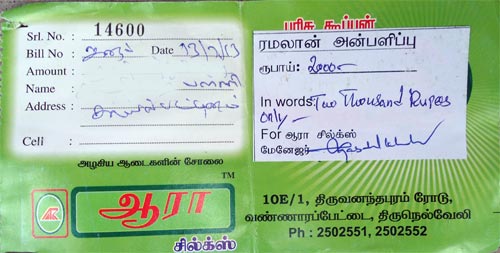 Srl. No. : 14600
Bill No : Date 13/7/13
Amount :
Name பள்ளி
Address :
Cell :
அழகிய ஆடைகளின் சோலை
TM
ஆரா
சில்க்ஸ்
பரிசு கூப்பன்
ரமலான் அன்பளிப்பு
ரூபாய்: 2000-
In words: Two Thousand Rupees
only-
For ஆரா சில்க்ஸ்
மேனேஜர்
10E/1, திருவனந்தபுரம் ரோடு,
வண்ணாரப்பேட்டை, திருநெல்வேலி
Ph : 2502551, 2502552